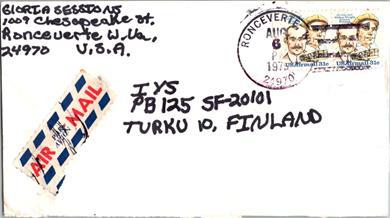 GLORIA SESSIONS
1009 Chesapeake St.
Ronceverte W.Va,
24970 U.S.A.
RONCEVERTE
AUG
6
P
1979
24970
USAirmail 31c
USAirmail 31c
AIR MAIL
PAR AVION
IYS
PB 125 SF-20101
TURKU 10, FINLAND